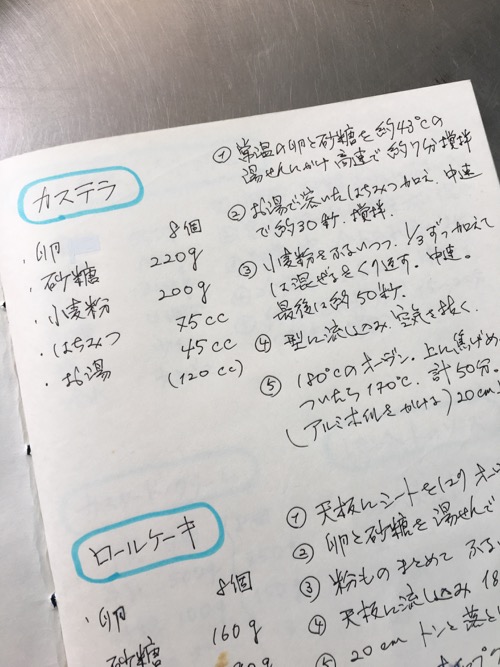 カステラ
・卵 8個
・砂糖 220g
・小麦粉 200g
・はちみつ 75cc
・お湯 45cc
(120cc)
① 常温の卵と砂糖を約43℃の
湯せんにかけ 高速で 約7分撹拌
② お湯で溶いたはちみつ加え、中速
で約30秒、撹拌.
③ 小麦粉をふるいつつ、1/3ずつ加えて
は混ぜるをくり返す。中速。
最後は約50秒.
④ 型に流し込み 空気を抜く.
⑤ 180℃のオーブン。上に焦げめ
ついたら170℃. 計50分.
(アルミホイルをかける) 20cm
ロールケーキ
・卵 8個
砂糖 160g
① 天板にシートを
② 卵と砂糖を湯せんで
③ 粉ものまとめて ふるい
④ 天板に流し込み 18
⑤ 20cm トンと落と